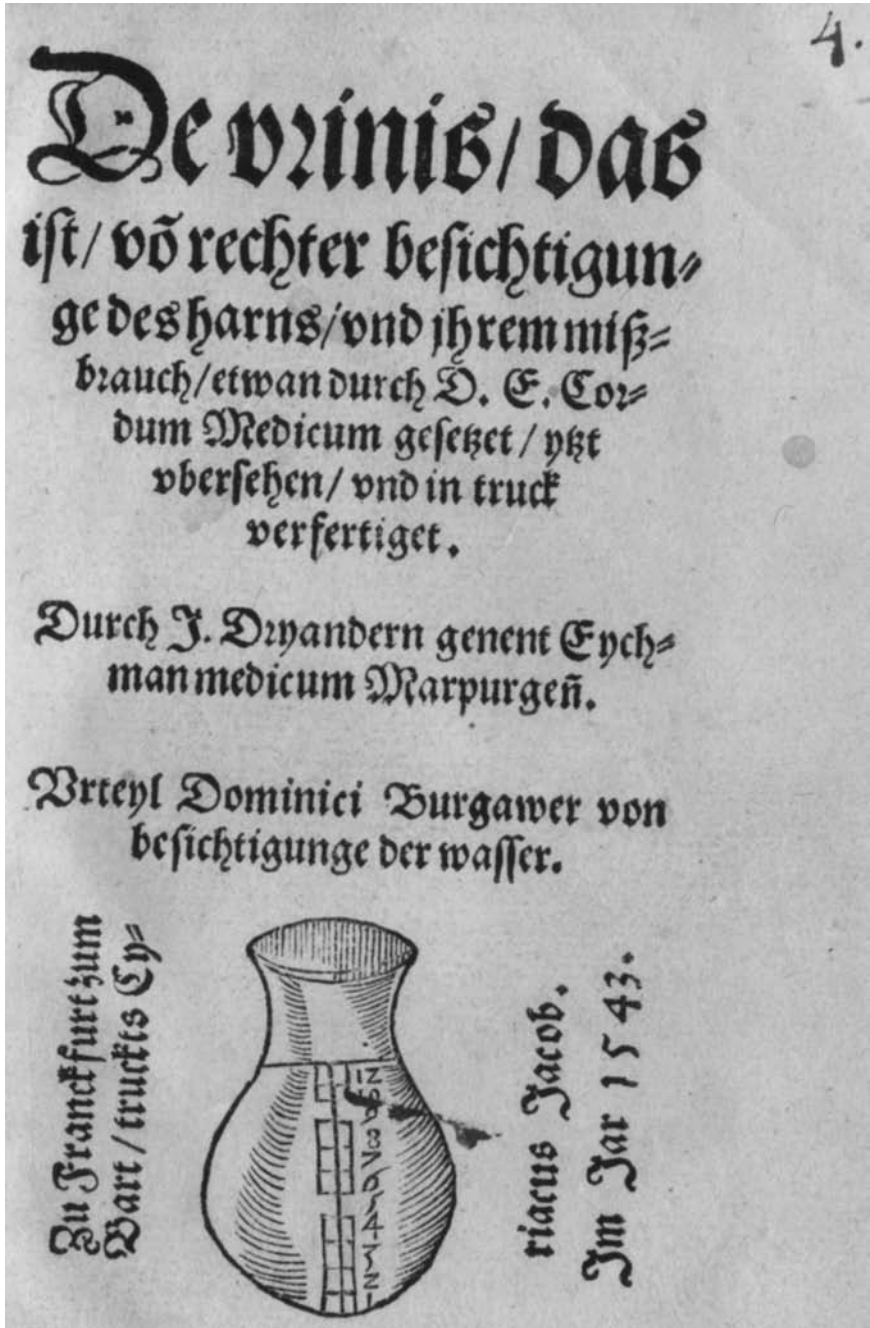 4.
De vrinis/ das
ist/ võ rechter besichtigun-
ge des harns/vnd jhrem miß-
brauch/etwan durch D. E. Cor-
dum Medicum gesetzet/ ytzt
vbersehen/ vnd in truck
verfertiget.
Durch J. Dryandern genent Eych-
man medicum Marpurgeñ.
Vrteyl Dominici Burgawer von
besichtigunge der wasser.
Zu Franckfurt zum
Bart/ truckts Cy-
riacus Jacob.
Im Jar 1543.